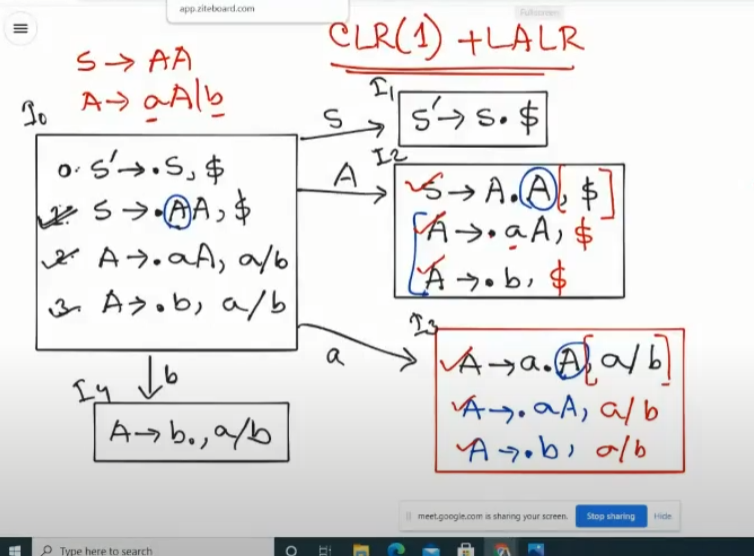 app.ziteboard.com
Fullscreen
CLR(1) + LALR
S → AA
A → aA|b
I0
0. S' → .S, $
1. S → .AA, $
2. A → .aA, a/b
3. A → .b, a/b
S
I1
S' → S. $
A
I2
S → A.A, $
A → .aA, $
A → .b, $
a
I3
A → a.A, a/b
A → .aA, a/b
A → .b, a/b
b
I4
A → b., a/b
meet.google.com is sharing your screen.
Stop sharing
Hide
Type here to search